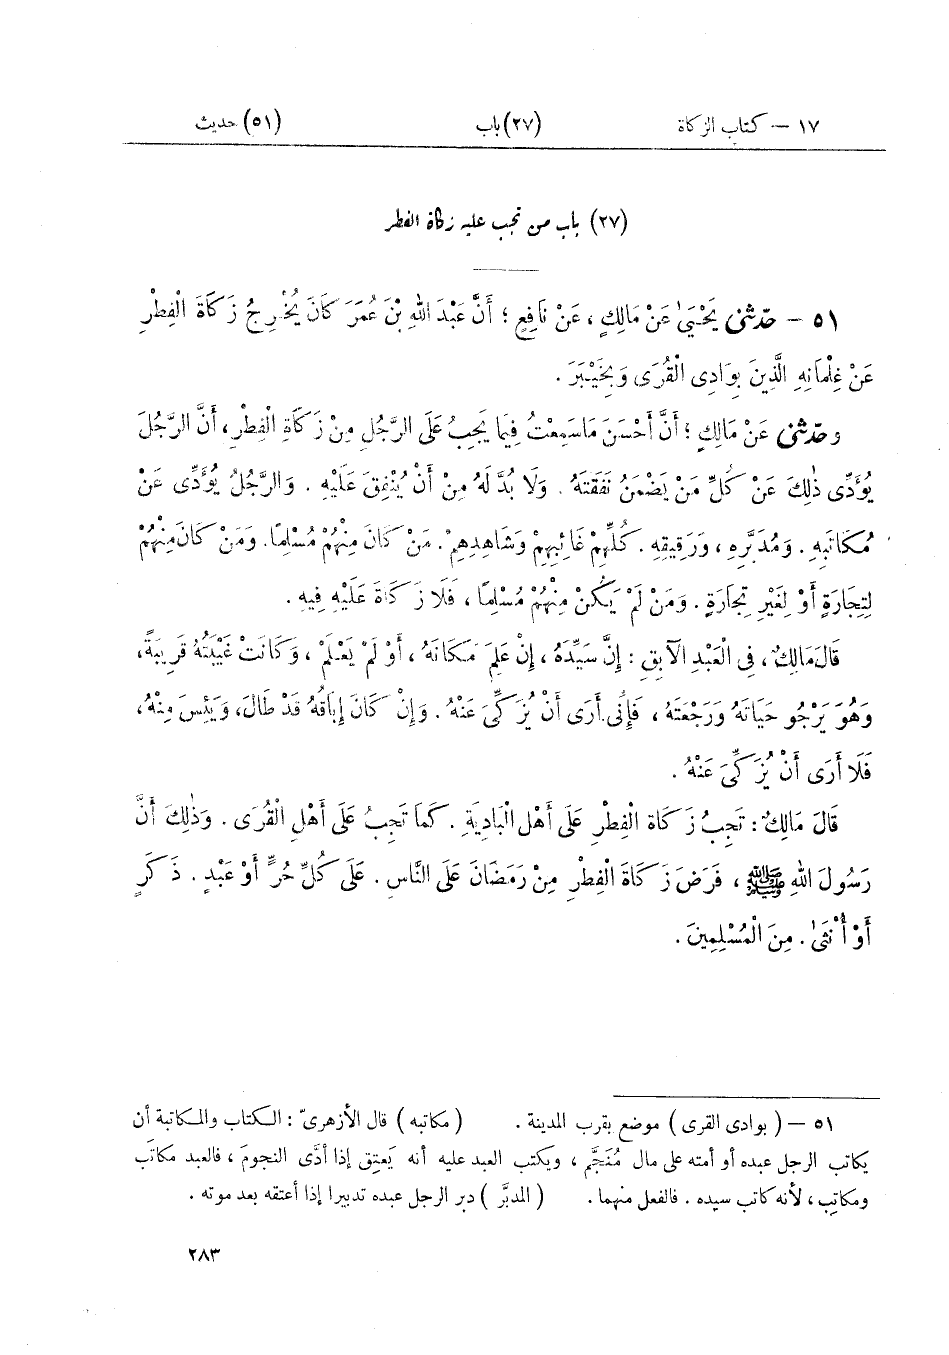 ١٧ – كتاب الزكاة (٢٧) باب (٥١) حديث
(٢٧) باب من تجب عليه زكاة الفطر
٥١ – حدّثنى يَحْيَىٰ عَنْ مَالِكٍ ، عَنْ نَافِعٍ ؛ أَنَّ عَبْدَ اللهِ بْنَ عُمَرَ كَانَ يُخْرِجُ زَكَاةَ الْفِطْرِ
عَنْ غِلْمَانِهِ الَّذِينَ بِوَادِى الْقُرَى وَبِخَيْبَرَ .
وحدّثنى عَنْ مَالِكٍ ؛ أَنَّ أَحْسَنَ مَاسَمِعْتُ فِيمَا يَجِبُ عَلَى الرَّجُلِ مِنْ زَكَاةِ الْفِطْرِ، أَنَّ الرَّجُلَ
يُؤَدِّى ذٰلِكَ عَنْ كُلِّ مَنْ يَضْمَنُ نَفَقَتَهُ . وَلَا بُدَّ لَهُ مِنْ أَنْ يُنْفِقَ عَلَيْهِ . وَالرَّجُلُ يُؤَدِّى عَنْ
مُكَاتَبِهِ . وَمُدَبَّرِهِ ، وَرَقِيقِهِ . كُلِّهِمْ غَائِبِهِمْ وَشَاهِدِهِمْ . مَنْ كَانَ مِنْهُمْ مُسْلِمًا. وَمَنْ كَانَ مِنْهُمْ
لِتِجَارَةٍ أَوْ لِغَيْرِ تِجَارَةٍ . وَمَنْ لَمْ يَكُنْ مِنْهُمْ مُسْلِمًا ، فَلَا زَكَاةَ عَلَيْهِ فِيهِ .
قَالَ مَالِكٌ ، فِى الْعَبْدِ الْآبِقِ : إِنَّ سَيِّدَهُ ، إِنْ عَلِمَ مَكَانَهُ ، أَوْ لَمْ يَعْلَمْ ، وَكَانَتْ غَيْبَتُهُ قَرِيبَةً،
وَهُوَ يَرْجُو حَيَاتَهُ وَرَجْعَتَهُ ، فَإِنِّى أَرَى أَنْ يُزَكِّىَ عَنْهُ . وَإِنْ كَانَ إِبَاقُهُ قَدْ طَالَ، وَيَئِسَ مِنْهُ،
فَلَا أَرَى أَنْ يُزَكِّىَ عَنْهُ .
قَالَ مَالِكٌ : تَجِبُ زَكَاةُ الْفِطْرِ عَلَى أَهْلِ الْبَادِيَةِ . كَمَا تَجِبُ عَلَى أَهْلِ الْقُرَى . وَذٰلِكَ أَنَّ
رَسُولَ اللهِ ﷺ ، فَرَضَ زَكَاةَ الْفِطْرِ مِنْ رَمَضَانَ عَلَى النَّاسِ . عَلَى كُلِّ حُرٍّ أَوْ عَبْدٍ . ذَكَرٍ
أَوْ أُنْثَىٰ . مِنَ الْمُسْلِمِينَ .
٥١ – ( بوادى القرى ) موضع بقرب المدينة . ( مكاتبه ) قال الأزهرىّ : الكتاب والمكاتبة أن
يكاتب الرجل عبده أو أمته على مال مُنَجَّم ، ويكتب العبد عليه أنه يَعتِق إذا أدَّى النجومَ ، فالعبد مكاتَب
ومكاتِب ، لأنه كاتب سيده . فالفعل منهما . ( المدبَّر ) دبر الرجل عبده تدبيرا إذا أعتقه بعد موته .
٢٨٣